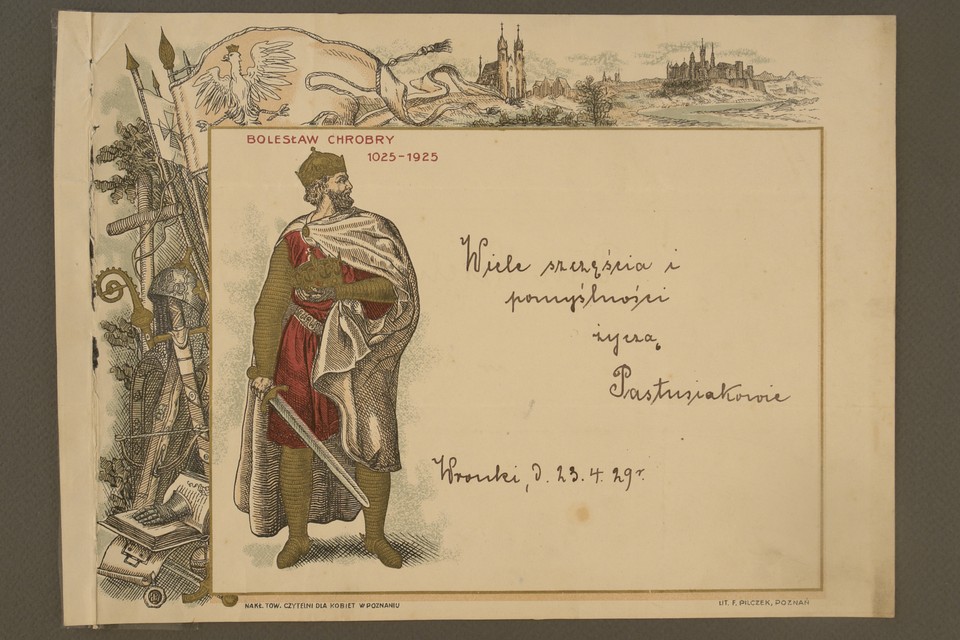 BOLESŁAW CHROBRY
1025-1925
Wiele szczęścia i
pomyślności
życzą
Pastusiakowie
Wronki, d. 23.4.29r.
NAKŁ. TOW. CZYTELNI DLA KOBIET W POZNANIU
LIT. F. PILCZEK, POZNAŃ